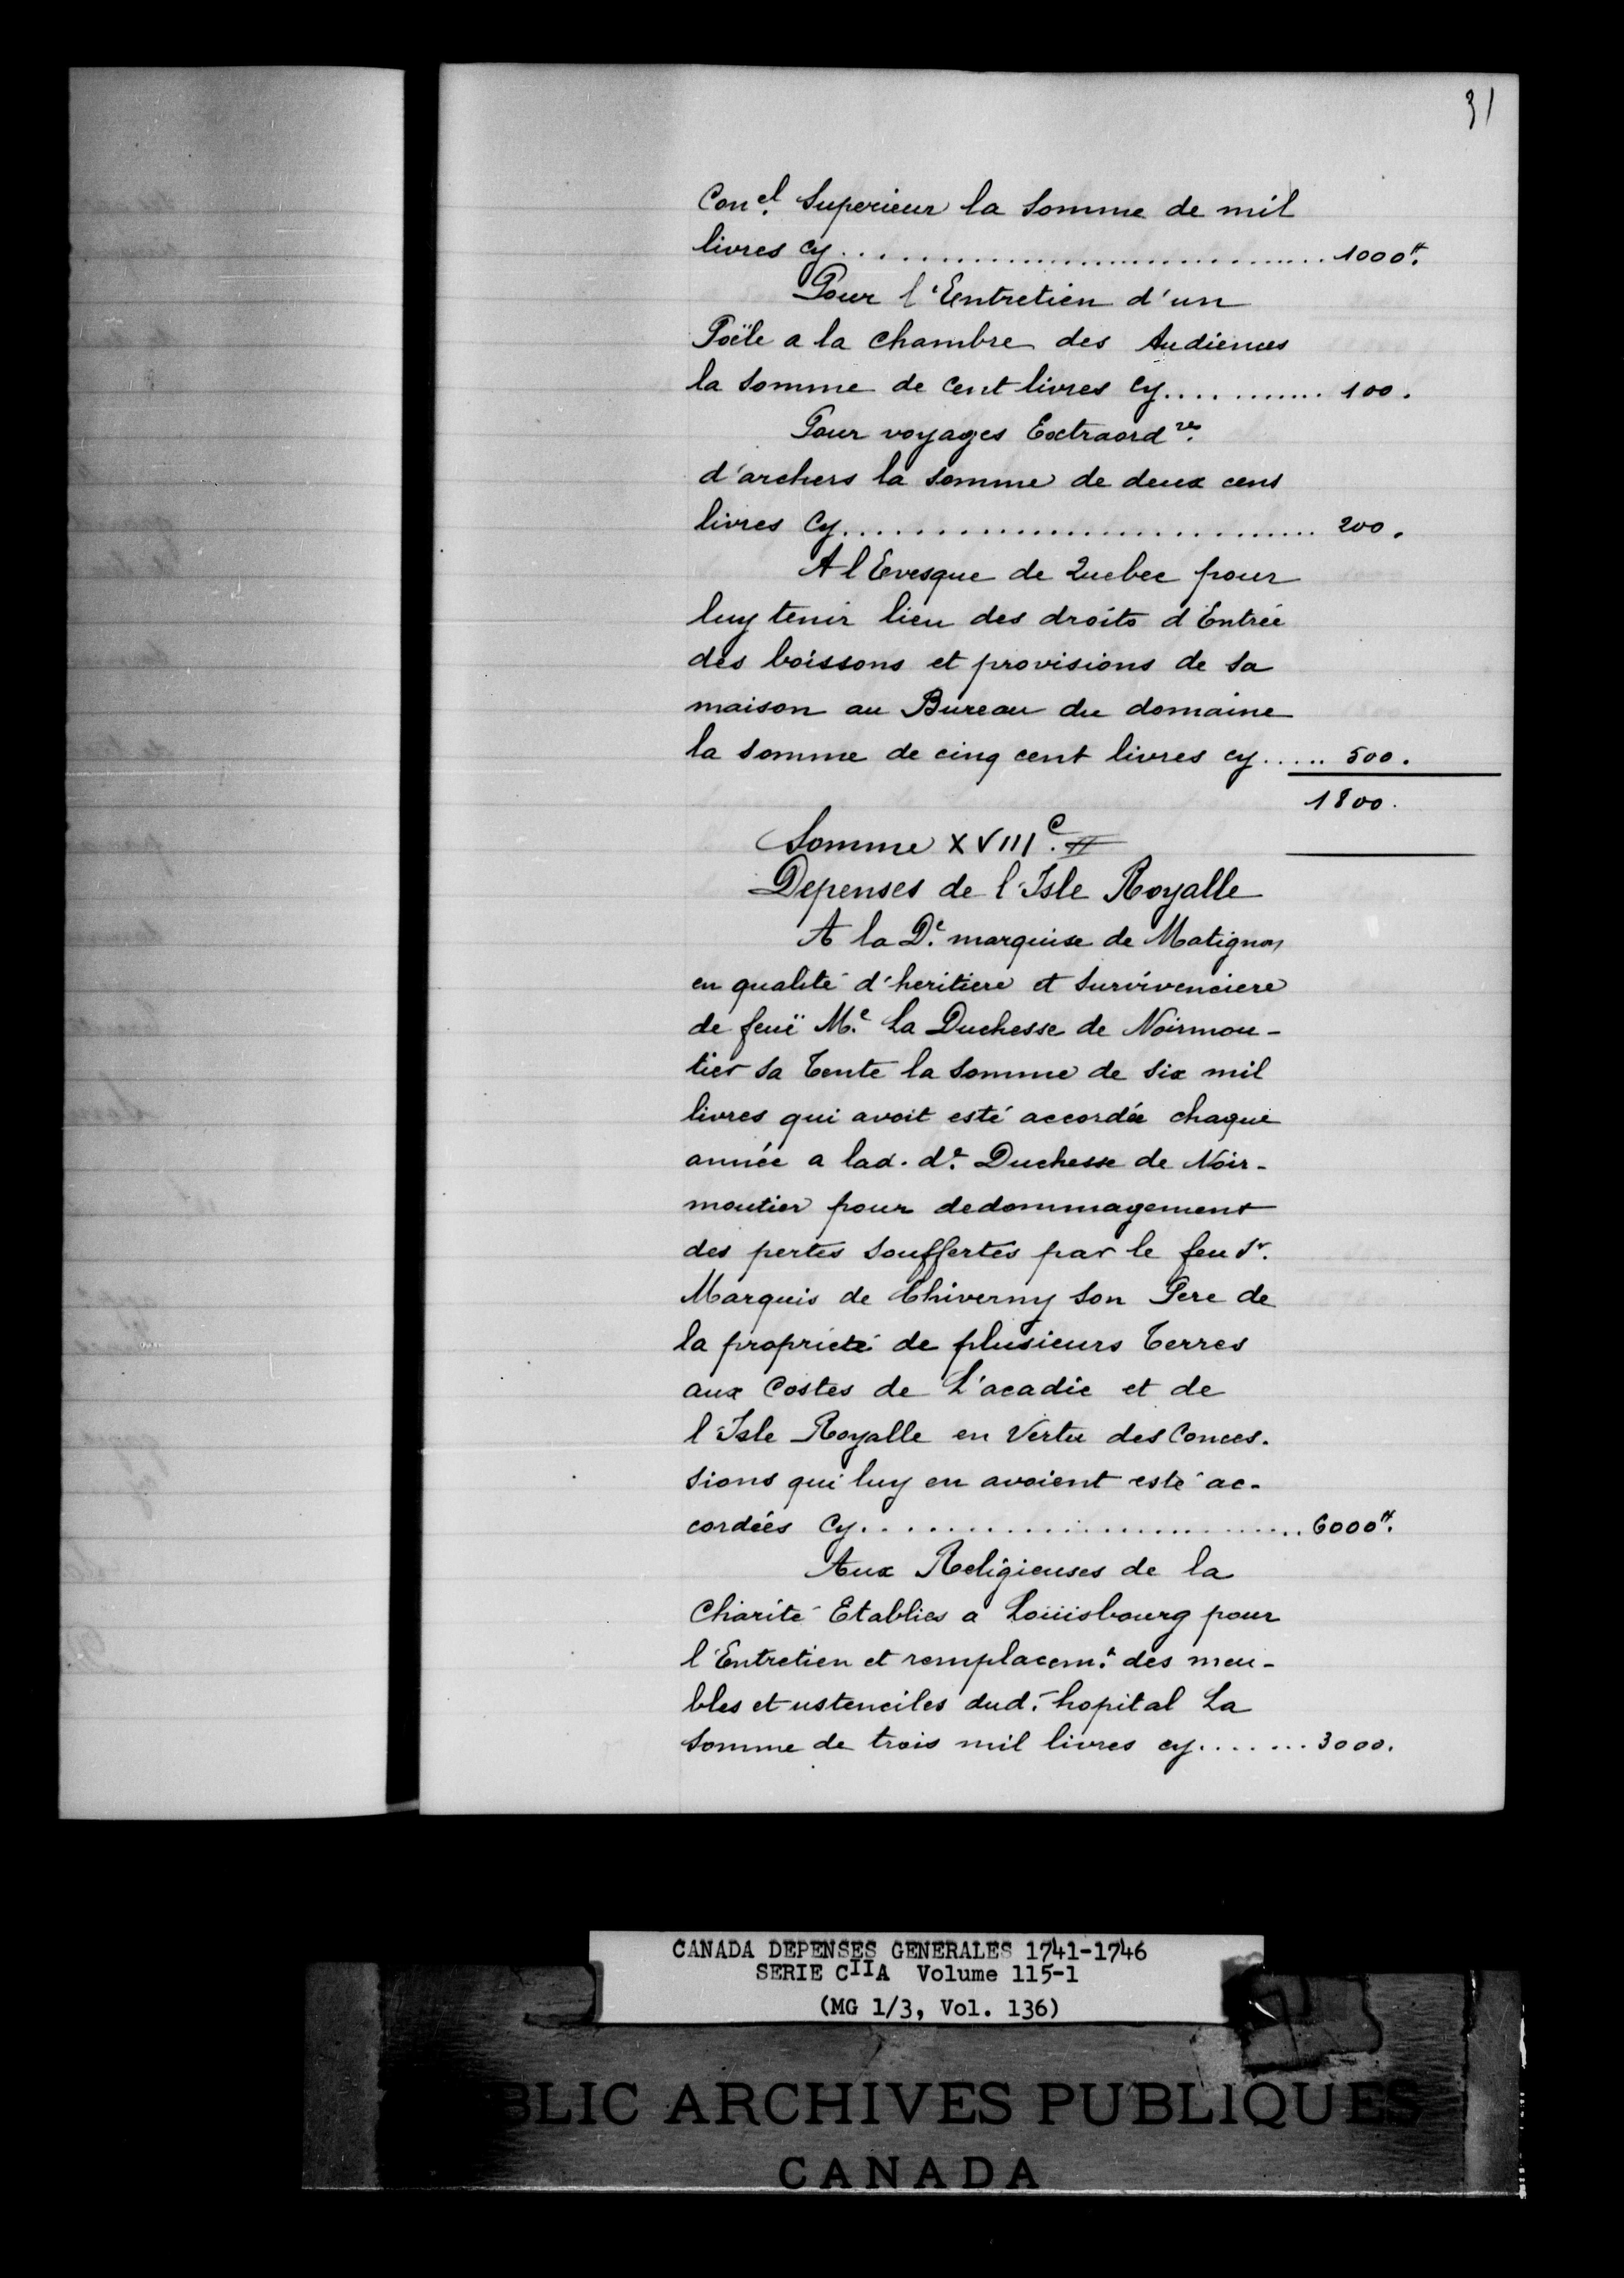 31
Con.el Superieur la somme de mil
livres cy.............................. 1000.#
Pour l'Entretien d'un
Poïle a la chambre des Audiences
la somme de cent livres cy............ 100.
Pour voyages Extraord.res
d'archers la somme de deux cens
livres Cy.............................. 200.
A l Evesque de Quebec pour
luy tenir lieu des droits d'Entrée
des boissons et provisions de sa
maison au Bureau du domaine
la somme de cinq cent livres cy..... 500.
1800.
Somme XVIII.C #
Depenses de l'Isle Royalle
A la D.e marquise de Matignon
en qualité d'heritiere et survivenciere
de feuë M.e La Duchesse de Noirmou-
tier sa tente la somme de six mil
livres qui avoit esté accordée chaque
année a lad. d.e Duchesse de Noir-
moutier pour dedommagement
des pertes souffertes par le feu Sr.
Marquis de Chiverny son Pere de
la proprieté de plusieurs terres
aux Costes de L'acadie et de
l'Isle Royalle en Vertu des Conces-
sions qui luy en avoient esté ac-
cordées Cy......................... 6000.#
Aux Religieuses de la
Charité Etablies a Loüisbourg pour
l'Entretien et remplacem.t des meu-
bles et ustenciles dud. hopital La
somme de trois mil livres cy....... 3000.
CANADA DEPENSES GENERALES 1741-1746
SERIE CIIA Volume 115-1
(MG 1/3, Vol. 136)
BLIC ARCHIVES PUBLIQUES
CANADA